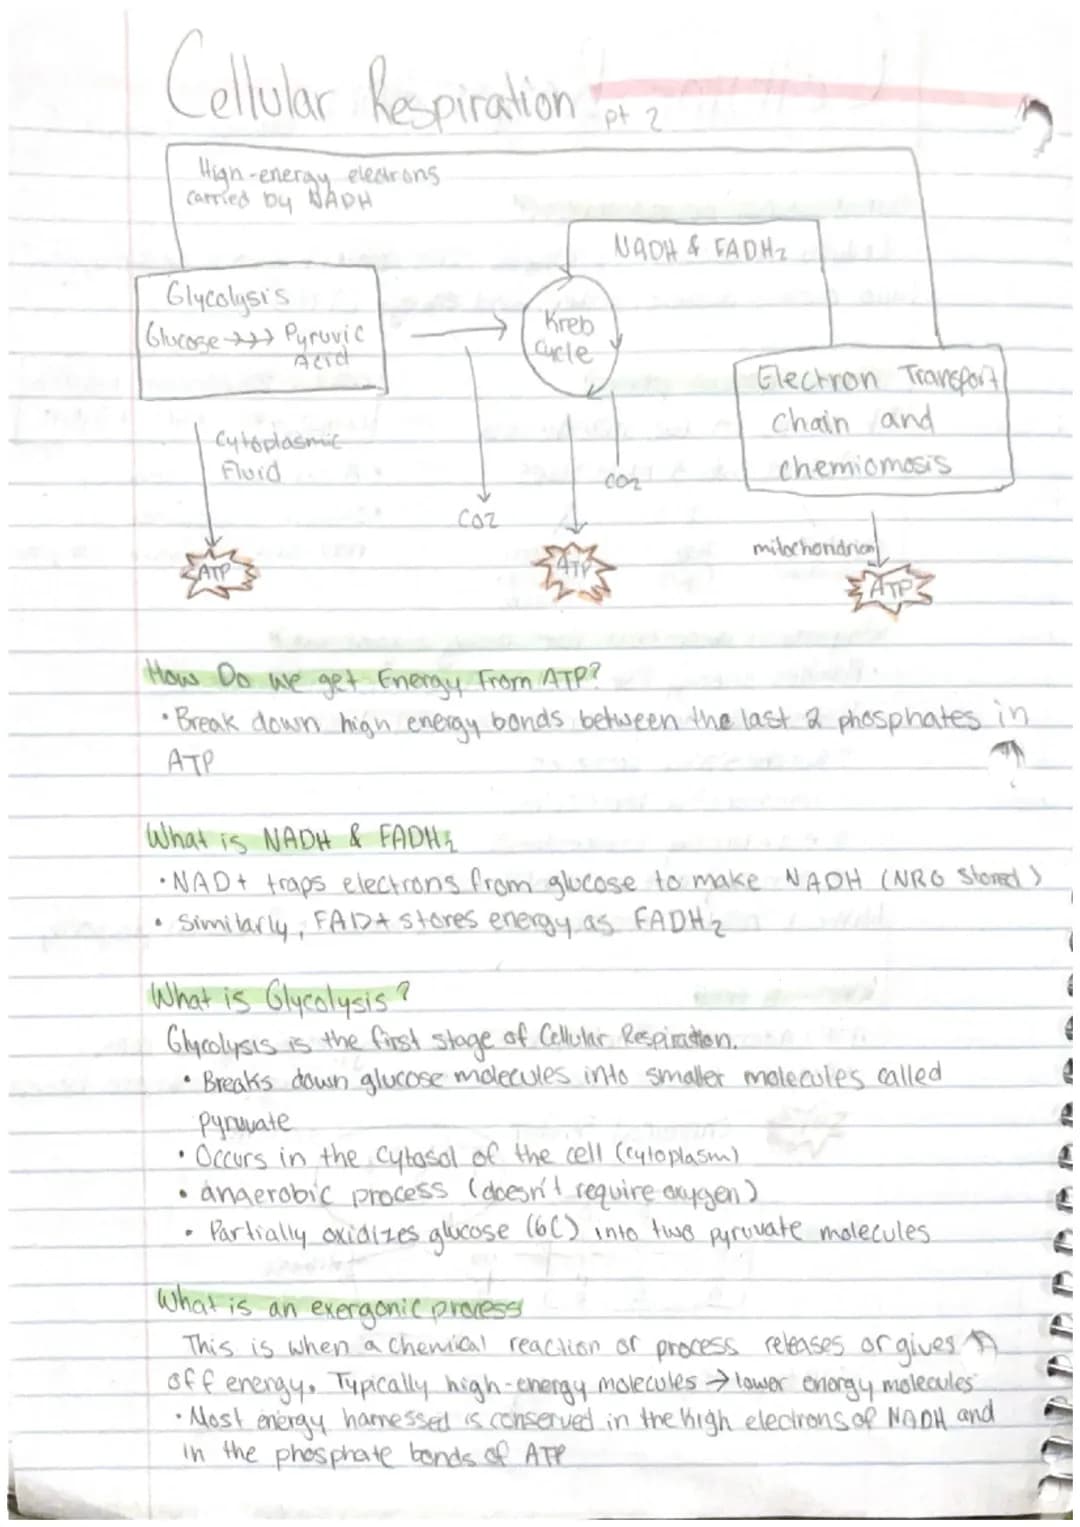 Cellular Respiration pt 2
High-energy electrons
carried by NADH
NADH & FADH2
Glycolysis
Glucose →→→ Pyruvic
Acid
Kreb
Cycle
Electron Transport
chain and
chemiomosis
Cytoplasmic
Fluid
CO2
CO2
mitochondrion
ATP
ATP
ATP
How Do we get Energy From ATP?
• Break down high energy bonds between the last 2 phosphates in
ATP
What is NADH & FADH2
• NAD+ traps electrons from glucose to make NADH (NRG Stored)
• Similarly, FAD+ stores energy as FADH2
What is Glycolysis?
Glycolysis is the first stage of Cellular Respiration.
• Breaks down glucose molecules into smaller molecules called
pyruvate
• Occurs in the cytosol of the cell (cytoplasm)
• anaerobic process (doesn't require oxygen)
• Partially oxidizes glucose (6C) into two pyruvate molecules
What is an exergonic process
This is when a chemical reaction or process releases or gives
off energy. Typically high-energy molecules → lower energy molecules
• Most energy harnessed is conserved in the high electrons of NADH and
in the phosphate bonds of ATP